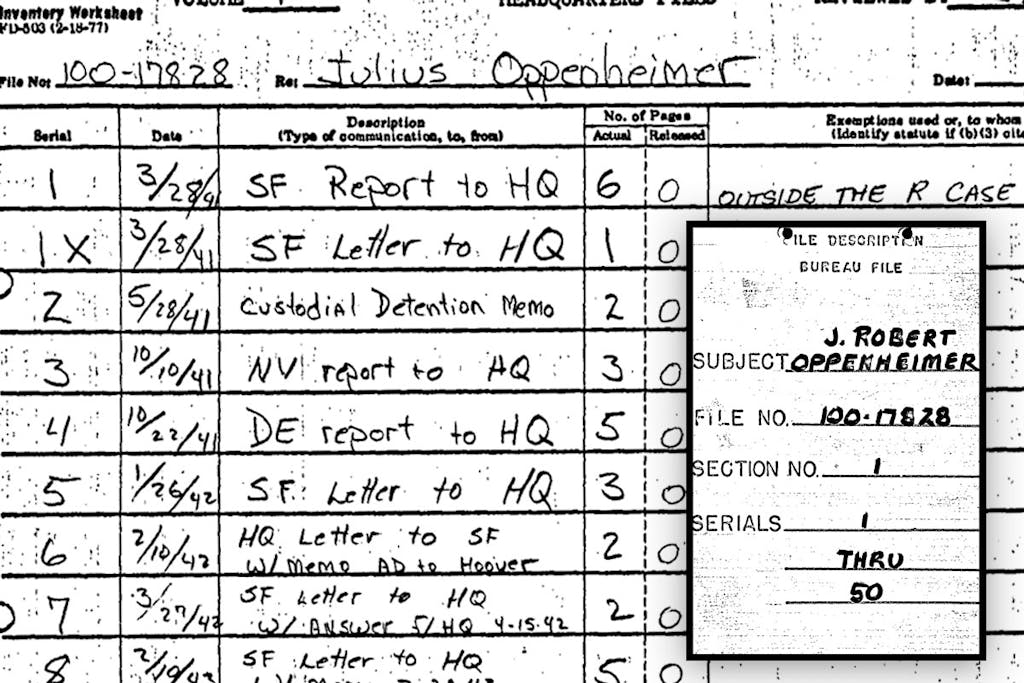 Inventory Worksheet
FD-503 (2-18-77)
File No: 100-17828 Re: Julius Oppenheimer Date:
Serial Date Description (Type of communication, to, from) No. of Pages Actual Released Exemptions used or, to whom (Identify statute if (b)(3)
1 3/28/41 SF Report to HQ 6 0 OUTSIDE THE R CASE
1X 3/28/41 SF Letter to HQ 1 0
2 5/28/41 Custodial Detention Memo 2 0
3 10/10/41 NV report to HQ 3 0
4 10/22/41 DE report to HQ 5 0
5 1/26/42 SF Letter to HQ 3 0
6 2/10/42 HQ Letter to SF
W/Memo AD to Hoover 2 0
7 3/27/42 SF Letter to HQ
W/ Answer 5/HQ 4-15-42 2 0
8 SF Letter to HQ 5 0
FILE DESCRIPTION
BUREAU FILE
J. ROBERT
SUBJECT OPPENHEIMER
FILE NO. 100-17828
SECTION NO. 1
SERIALS 1
THRU
50